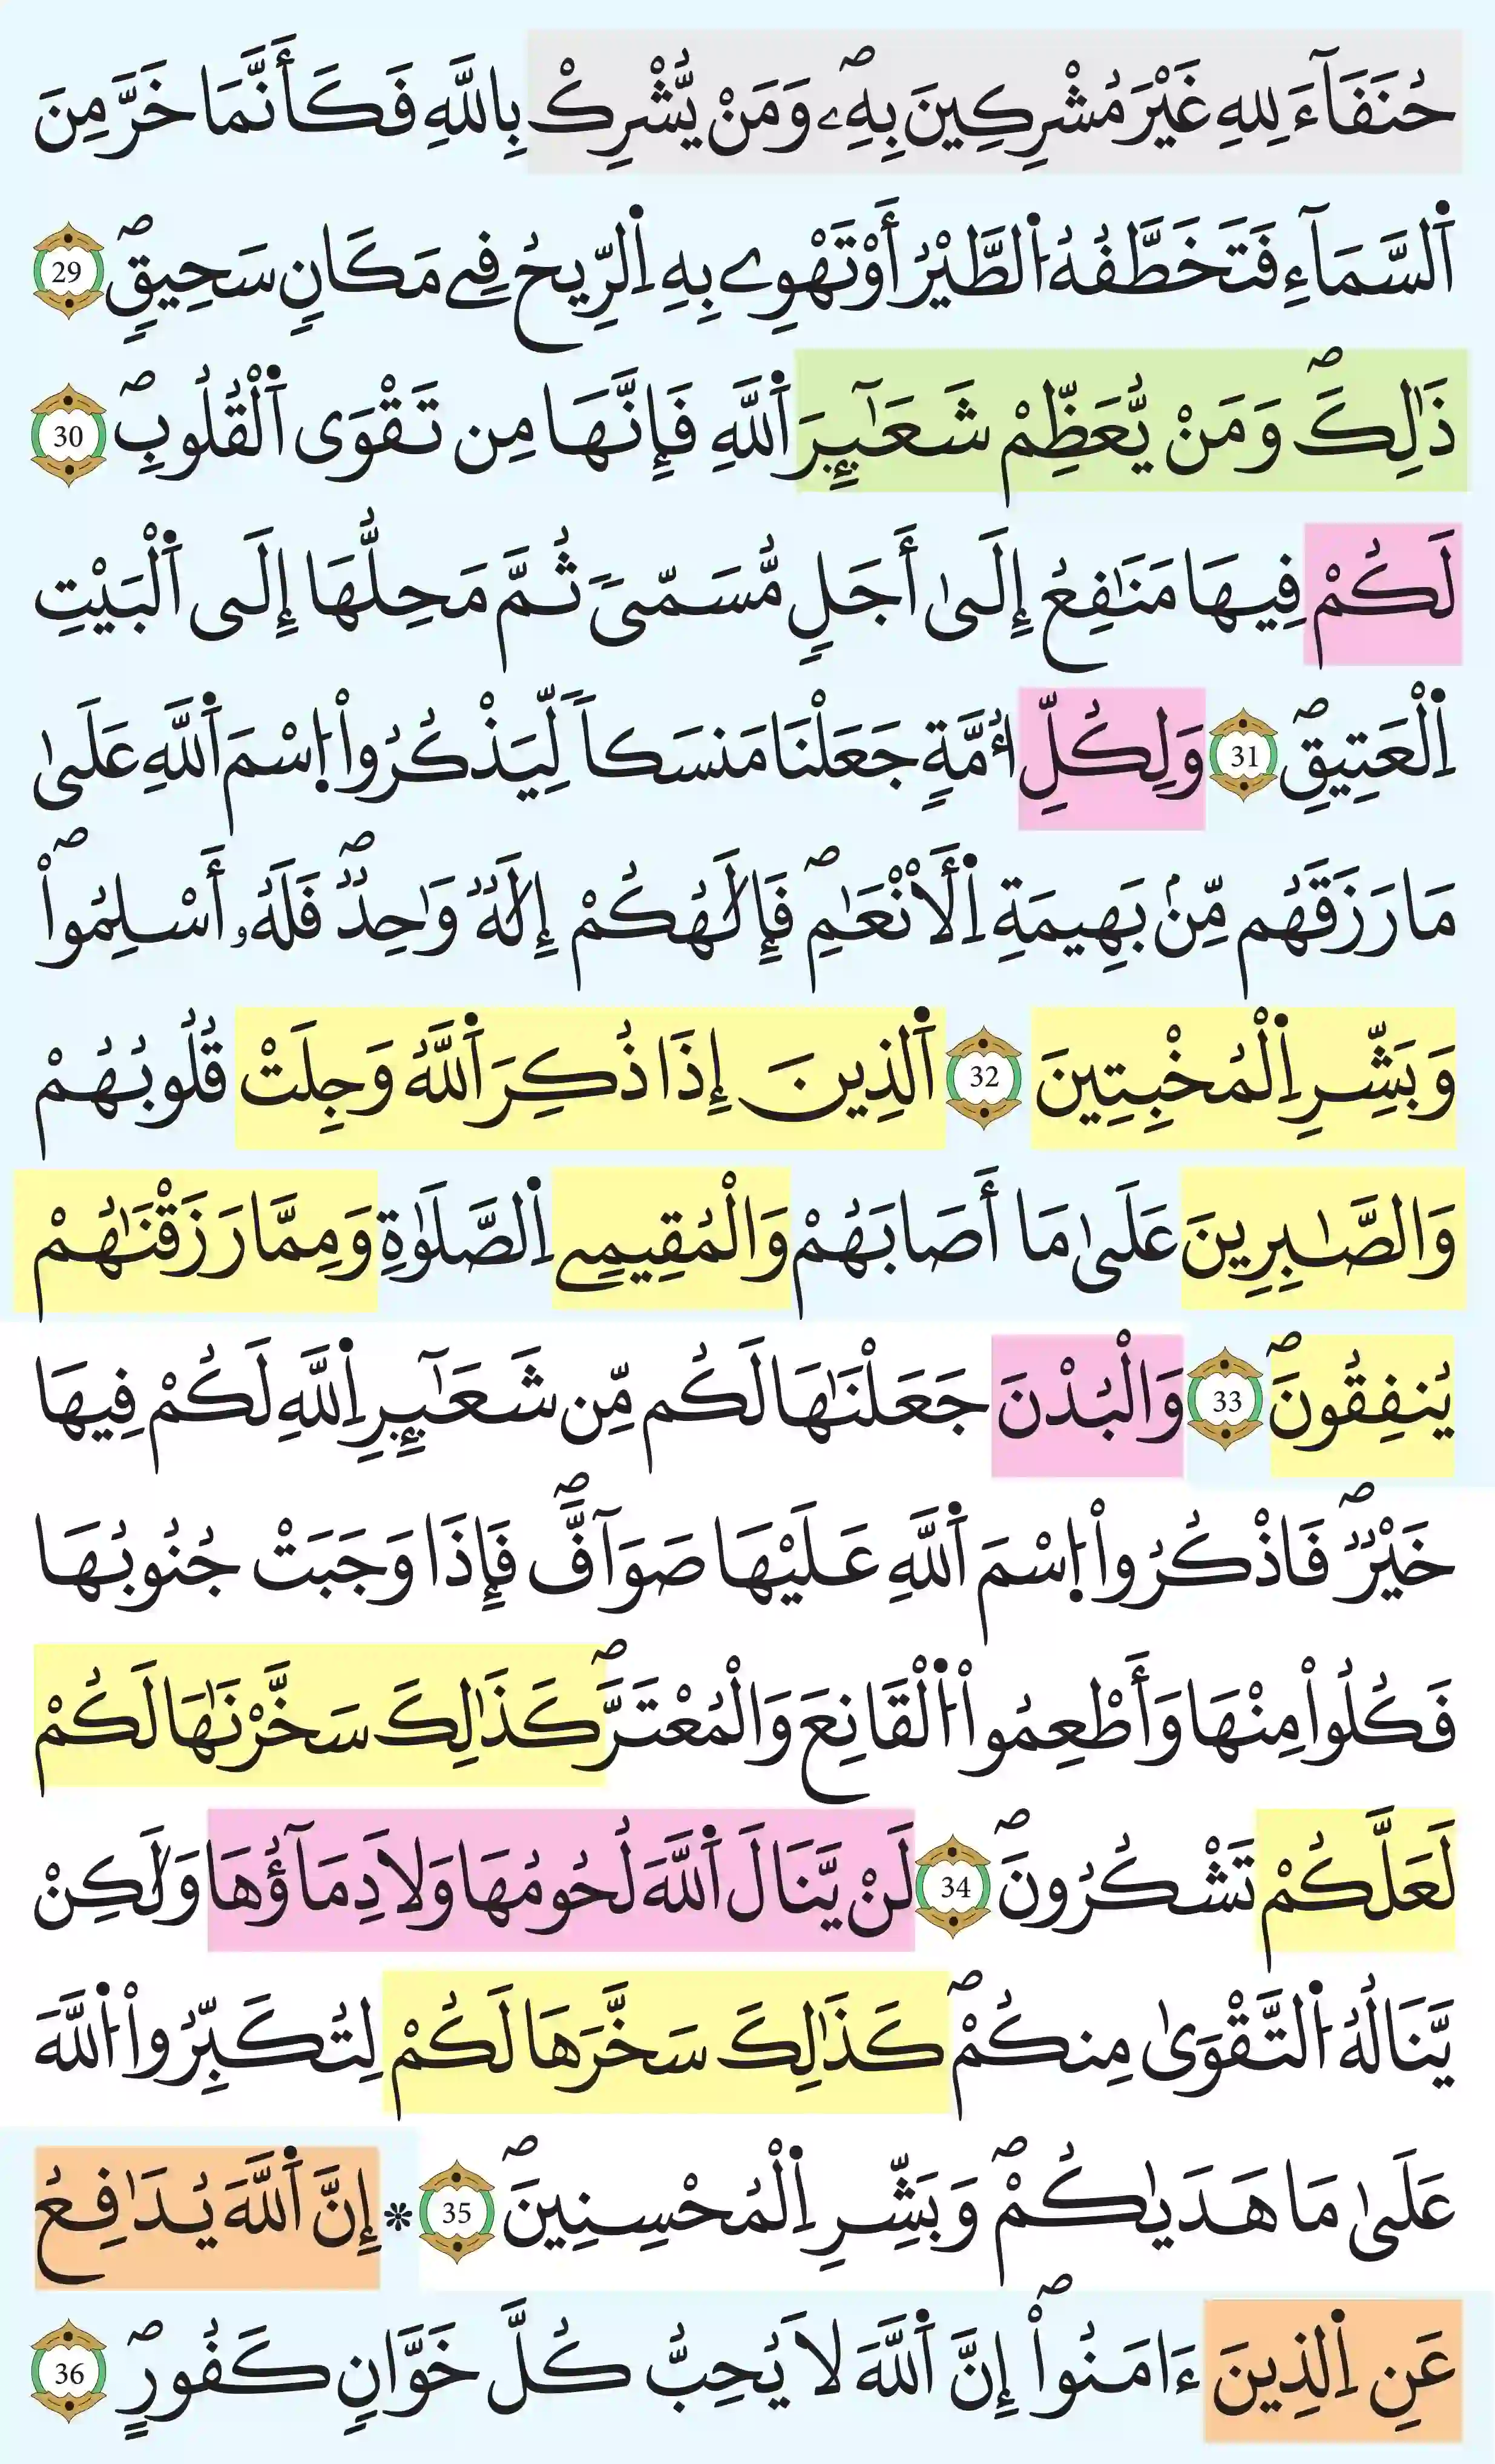 حُنَفَآءَ لِلهِ غَيْرَ مُشْرِكِينَ بِهِۦۖ وَمَنْ يُّشْرِكْ بِاللَّهِ فَكَأَنَّمَا خَرَّ مِنَ
اَ۬لسَّمَآءِ فَتَخَطَّفُهُ اُ۬لطَّيْرُ أَوْ تَهْوِے بِهِ اِ۬لرِّيحُ فِے مَكَانٖ سَحِيقٖۖ 29
ذَٰلِكَۖ وَمَنْ يُّعَظِّمْ شَعَٰٓئِرَ اَ۬للَّهِ فَإِنَّهَا مِن تَقْوَى اَ۬لْقُلُوبِۖ 30
لَكُمْ فِيهَا مَنَٰفِعُ إِلَىٰٓ أَجَلٖ مُّسَمّىٗ ثُمَّ مَحِلُّهَا إِلَى اَ۬لْبَيْتِ
اِ۬لْعَتِيقِۖ 31 وَلِكُلِّ أُمَّةٖ جَعَلْنَا مَنسَكاٗ لِّيَذْكُرُواْ اُ۪سْمَ اَ۬للَّهِ عَلَىٰ
مَا رَزَقَهُم مِّنۢ بَهِيمَةِ اِ۬لْأَنْعَٰمِۖ فَإِلَٰهُكُمْ إِلَٰهٞ وَٰحِدٞۖ فَلَهُۥ أَسْلِمُواْۖ
وَبَشِّرِ اِ۬لْمُخْبِتِينَ 32 اَ۬لذِينَ إِذَا ذُكِرَ اَ۬للَّهُ وَجِلَتْ قُلُوبُهُمْ
وَالصَّٰبِرِينَ عَلَىٰ مَا أَصَابَهُمْ وَالْمُقِيمِے اِ۬لصَّلَوٰةِ وَمِمَّا رَزَقْنَٰهُمْ
يُنفِقُونَۖ 33 وَالْبُدْنَ جَعَلْنَٰهَا لَكُم مِّن شَعَٰٓئِرِ اِ۬للَّهِ لَكُمْ فِيهَا
خَيْرٞۖ فَاذْكُرُواْ اُ۪سْمَ اَ۬للَّهِ عَلَيْهَا صَوَآفَّۖ فَإِذَا وَجَبَتْ جُنُوبُهَا
فَكُلُواْ مِنْهَا وَأَطْعِمُواْ اُ۬لْقَانِعَ وَالْمُعْتَرَّۖ كَذَٰلِكَ سَخَّرْنَٰهَا لَكُمْ
لَعَلَّكُمْ تَشْكُرُونَۖ 34 لَنْ يَّنَالَ اَ۬للَّهَ لُحُومُهَا وَلَا دِمَآؤُهَا وَلَٰكِنْ
يَّنَالُهُ اُ۬لتَّقْوَىٰ مِنكُمْۖ كَذَٰلِكَ سَخَّرَهَا لَكُمْ لِتُكَبِّرُواْ اُ۬للَّهَ
عَلَىٰ مَا هَدَىٰكُمْۖ وَبَشِّرِ اِ۬لْمُحْسِنِينَۖ 35 * إِنَّ اَ۬للَّهَ يُدَٰفِعُ
عَنِ اِ۬لذِينَ ءَامَنُواْۖ إِنَّ اَ۬للَّهَ لَا يُحِبُّ كُلَّ خَوَّانٖ كَفُورٍۖ 36